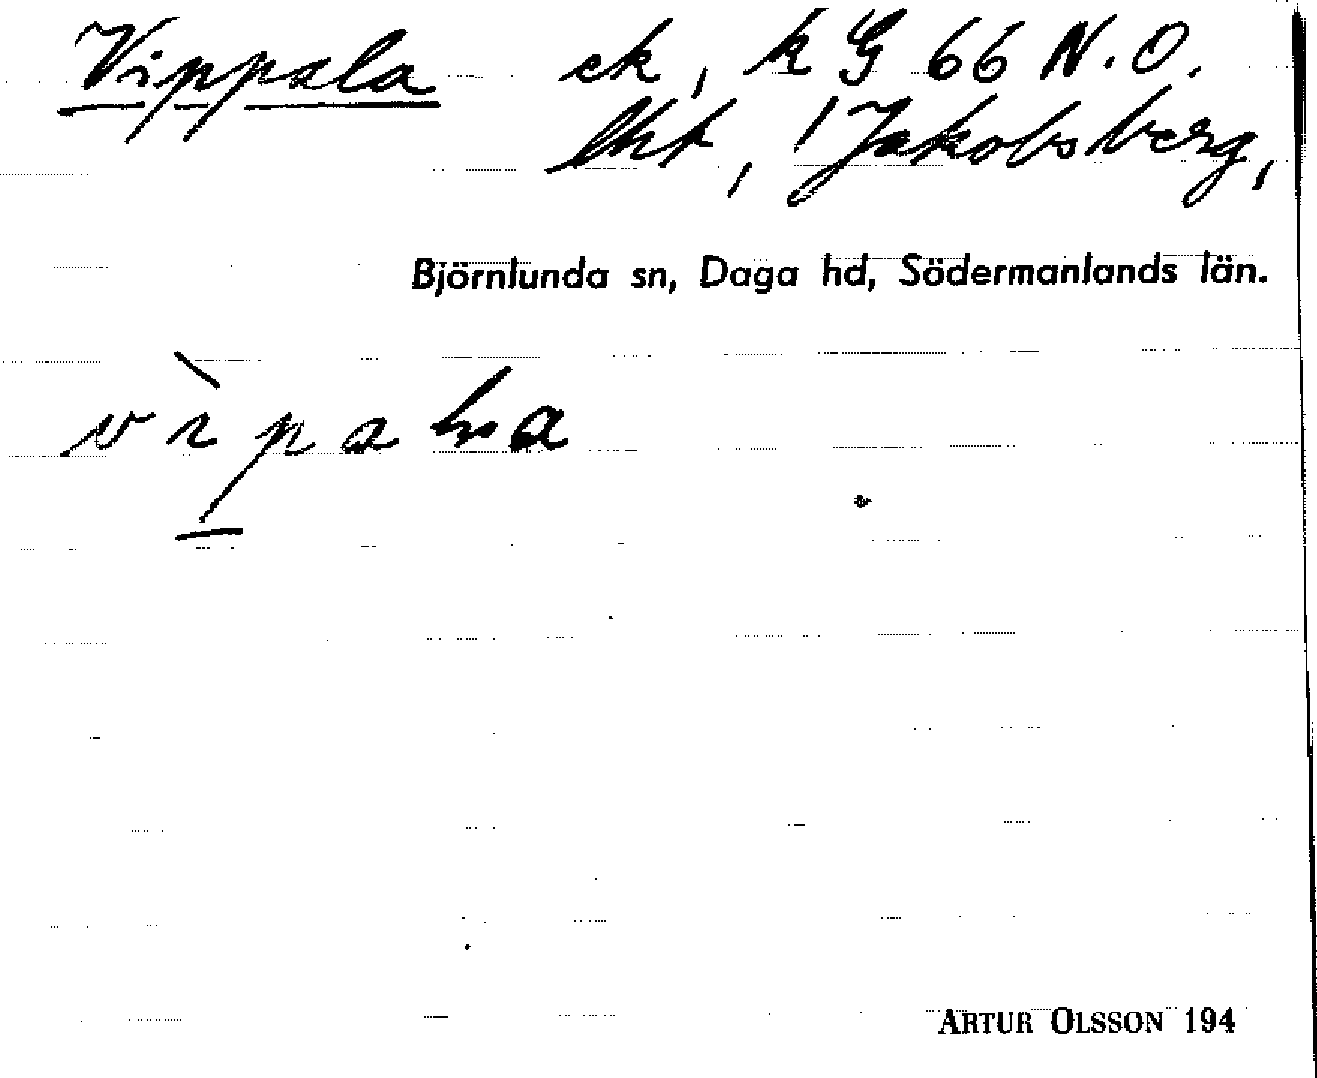 Vippala ek, k G 66 N.O.
lht, 1 Jakobsberg,
Björnlunda sn, Daga hd, Södermanlands län.
vìpala
ARTUR OLSSON 194